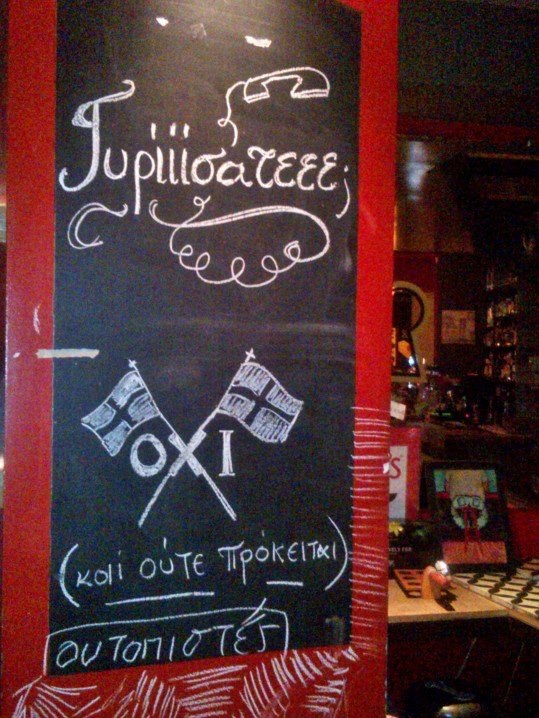 Γυρίίίσατεεε;
ΟΧΙ
(και ούτε πρόκειται)
ουτοπιστές